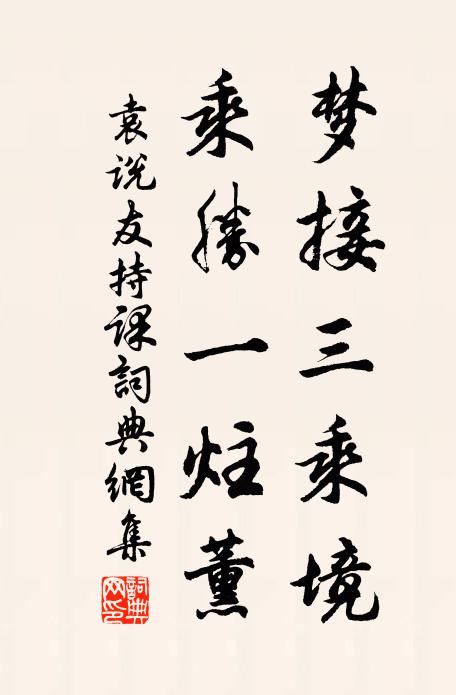 梦接三乘境
乘勝一炷薰
袁说友持课詞典網集
詞典網印